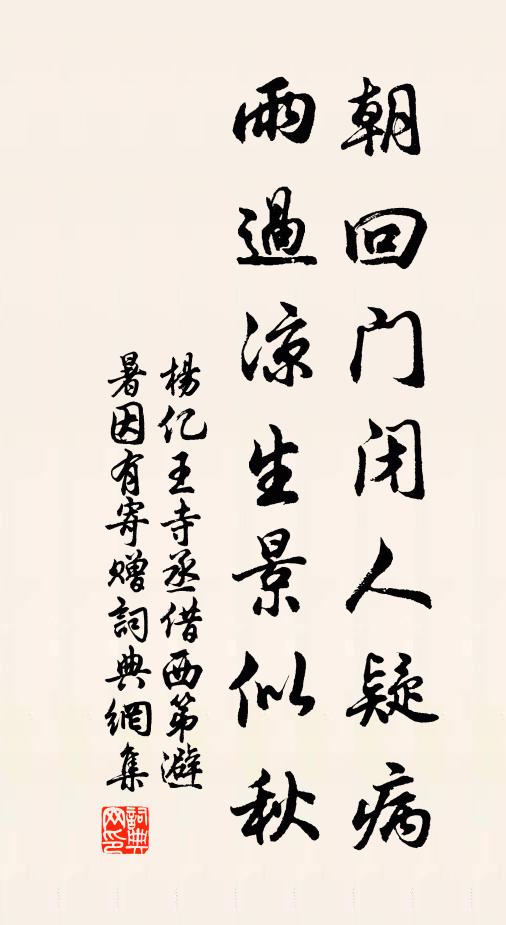 朝回门闭人疑病
雨過凉生景似秋
楊亿王寺丞借西第避
暑因有寄赠詞典網集
詞典
网印